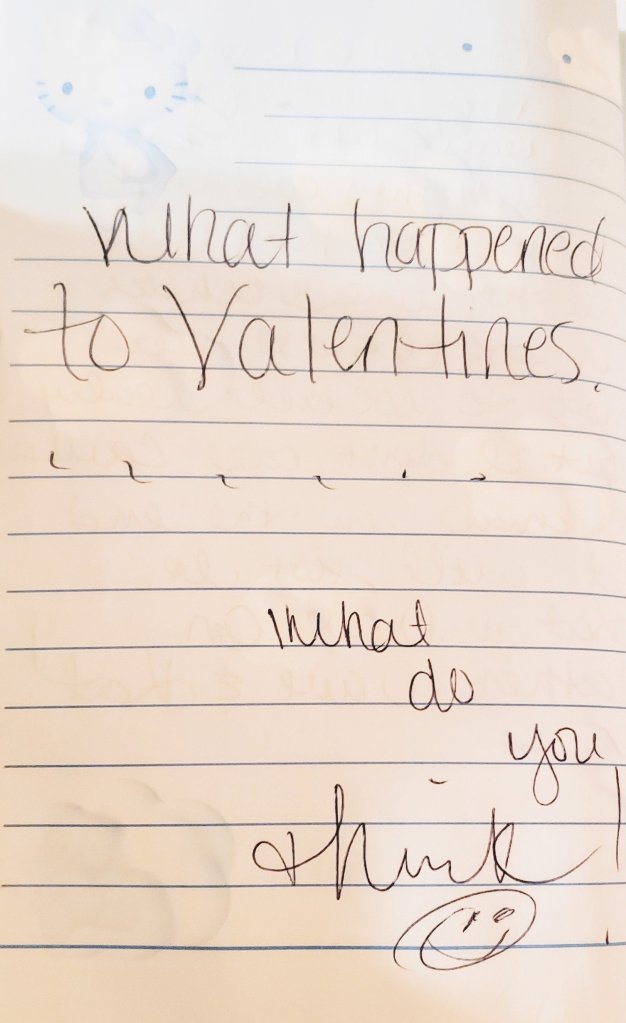 What happened
to Valentines.
. . . . . .
What
do
you
think!